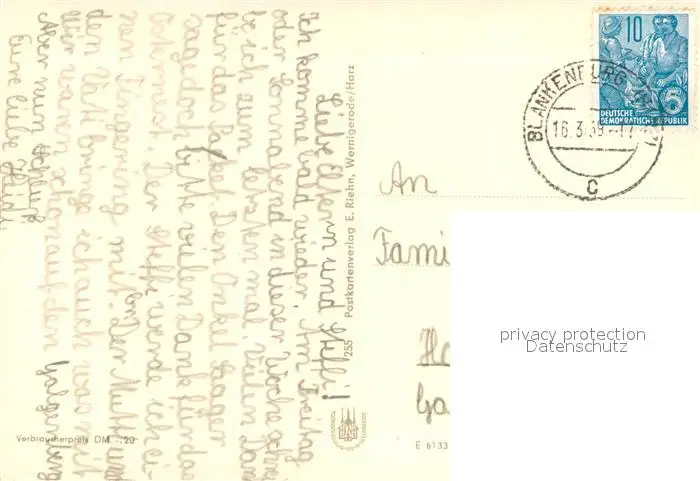 Liebe Eltern und Steffi!
Ich komme bald wieder. Am Freitag
oder Sonnabend in dieser Woche schrei
be ich zum letzten mal. Vielen Dank
für das Paket. Den Onkel
sagedoch bitte vielen Dank für das
Der Steffi werde ich ei-
nen mit. Der Mutti und
den Vati bringe ich auch was mit
Wir waren schon auf den Galgenberg
Aber nun Schluß
Eure liebe Heidi
255 Postkartenverlag E. Riehn, Wernigerode/Harz
Verbraucherpreis DM -.20
10
DEUTSCHE
DEMOKRATISCHE REPUBLIK
5
BLANKENBURG
16.3.59-17
C
An
Fami
Ha
Ga
E 6133
privacy protection
Datenschutz